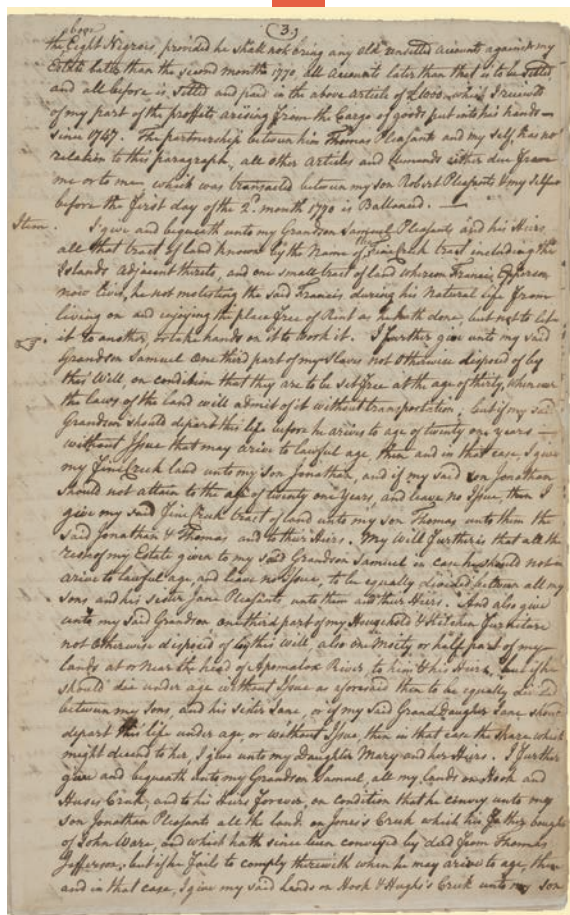 (3)
above
the Eight Negroes, provided he shall not bring any old unsetled accounts against my
Estate later than the second month 1770, all accounts later than that is to be setled
and all before is setled and paid in the above article of £1000 which I
of my part of the proffets arising from the Cargo of goods put into his hands
since 1747. The partnership between him Thomas Pleasants and my Self, has no
relation to this paragraph, all other articles and demands either due from
me or to me which was transacted between my son Robert Pleasants & my Self
before the first day of the 2d. month 1770 is Ballanced. —
Item. I give and bequeath unto my Grandson Samuel Pleasants and his Heirs
all that tract of land known by the Name of the Fine Creek tract including the
Islands adjacent thereto, and one small tract of land whereon Francis Epperson
now lives, he not molesting the said Francis during his Natural life from
living on and enjoying the place free of Rint as he hath done, but not to let
it to another, or take hands on it to work it. I further give unto my said
Grandson Samuel One third part of my Slaves not Otherwise disposed of by
this Will, on condition that they are to be Set free at the age of thirty, whenever
the laws of the land will admit of it without transportation; but if my said
Grandson should depart this life before he arives to age of twenty one years —
without Issue that may arive to lawful age, then and in that case, I give
my Fine Creek land unto my Son Jonathan, and if my said son Jonathan
should not attain to the age of twenty one years, and leave no Issue, then I
give my said Fine Creek tract of land unto my son Thomas unto them the
said Jonathan & Thomas and to their Heirs. My Will further is that all the
rest of my Estate given to my said Grandson Samuel in case he should not
arive to lawful age, and leave no Issue, to be equally divided between all my
Sons and his sister Jane Pleasants unto them and their Heirs. And also give
unto my said Grandson one third part of my Household & Kitchen furneture
not Otherwise disposed of by this Will, also one Moity or half part of my
lands at or near the head of Apomatox River, to him & his Heirs, but if he
should die under age without Issue as aforesaid then to be equally divided
between my Sons, and his sister Jane, or if my said Grand Daughter Jane should
depart this life under age, or without Issue, then in that case the share which
might decend to her, I give unto my Daughter Mary and her Heirs. I further
give and bequeath unto my Grandson Samuel, all my Lands on Hook and
Huses Creek, and to his Heirs forever, on condition that he convey unto my
Son Jonathan Pleasants all the land on Jones's Creek which his father bought
of John Ware, and which hath since been conveyed by deed from Thomas
Jefferson, but if he fails to comply therewith when he may arive to age, then
and in that case, I give my said lands on Hook & Hughs's Creek unto my son